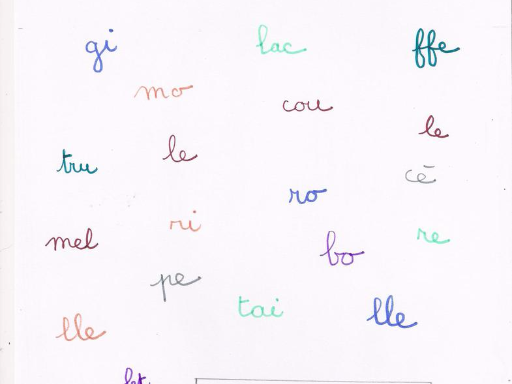 gi lac ffe
mo cou
le
tru le cé
ro
mel ri re
bo
pe
tai lle
lle
let